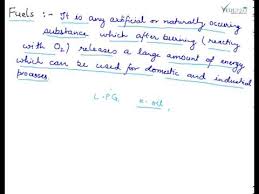 Fuels :- It is any artificial or naturally occuring
substance which after burning (reacting
with O2) releases a large amount of energy
which can be used for domestic and industrial
prosses.
L.P.G.